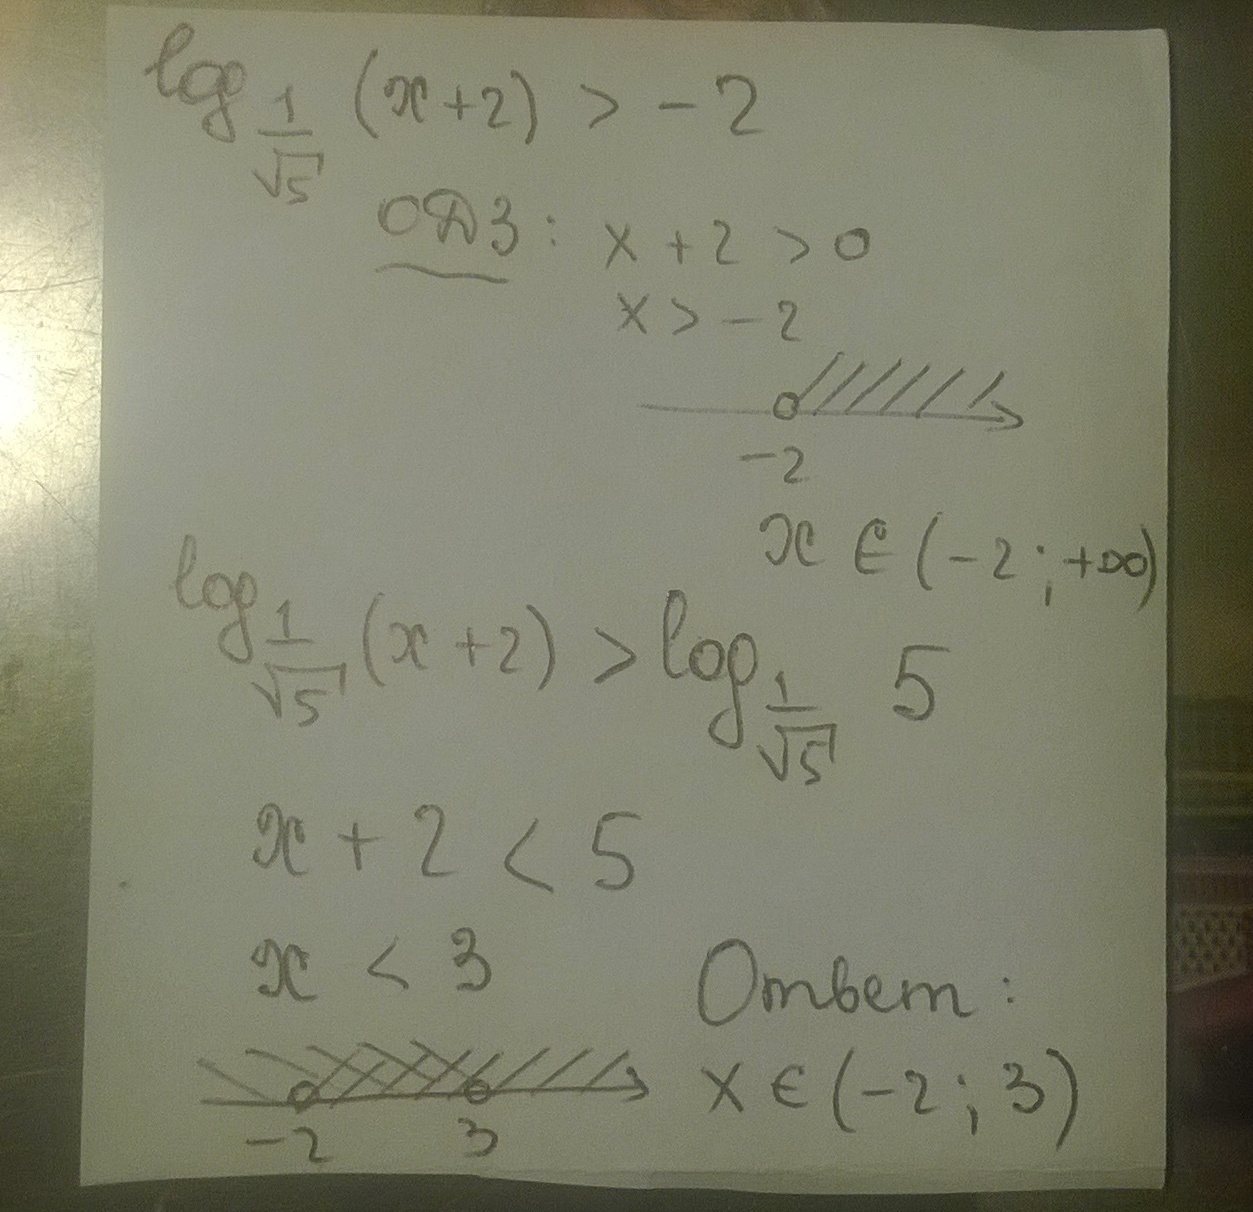 log_{1/√5} (x+2) > -2
ОДЗ: x + 2 > 0
x > -2
-2
x ∈ (-2; +∞)
log_{1/√5} (x+2) > log_{1/√5} 5
x + 2 < 5
x < 3
Ответ:
x ∈ (-2; 3)
-2 3